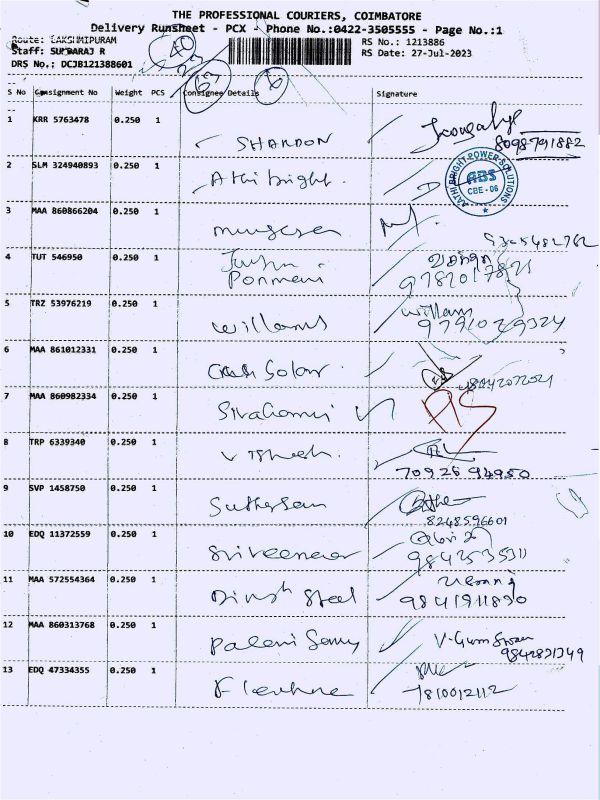 THE PROFESSIONAL COURIERS, COIMBATORE
Delivery Runsheet - PCX - Phone No.:0422-3505555 - Page No.:1
Route: LAKSHMIPURAM
RS No.: 1213886
Staff: SUNDARAJ R
RS Date: 27-Jul-2023
DRS No.: DCJB121388601
40
63
6
S No Consignment No Weight PCS Consignee Details Signature
1 KRR 5763478 0.250 1 SHARDON
8098791882
2 SLM 324940893 0.250 1 Athibright.
AATHI BRIGHT POWER SOLUTIONS
ABS
CBE - 06
3 MAA 860866204 0.250 1 murugesan
4 TUT 546950 0.250 1
Ponmani
5 TRZ 53976219 0.250 1 Williams William
9791029324
6 MAA 861012331 0.250 1 Solar
7 MAA 860982334 0.250 1 Sivakami
8 TRP 6339340 0.250 1 Vignesh.
70926 94950
9 SVP 1458750 0.250 1 Suthersan
8248596601
10 EDQ 11372559 0.250 1
9842535311
11 MAA 572554364 0.250 1 Dinesh Steel
9841911830
12 MAA 860313768 0.250 1 Palani Samy
9842831349
13 EDQ 47334355 0.250 1
7810012112